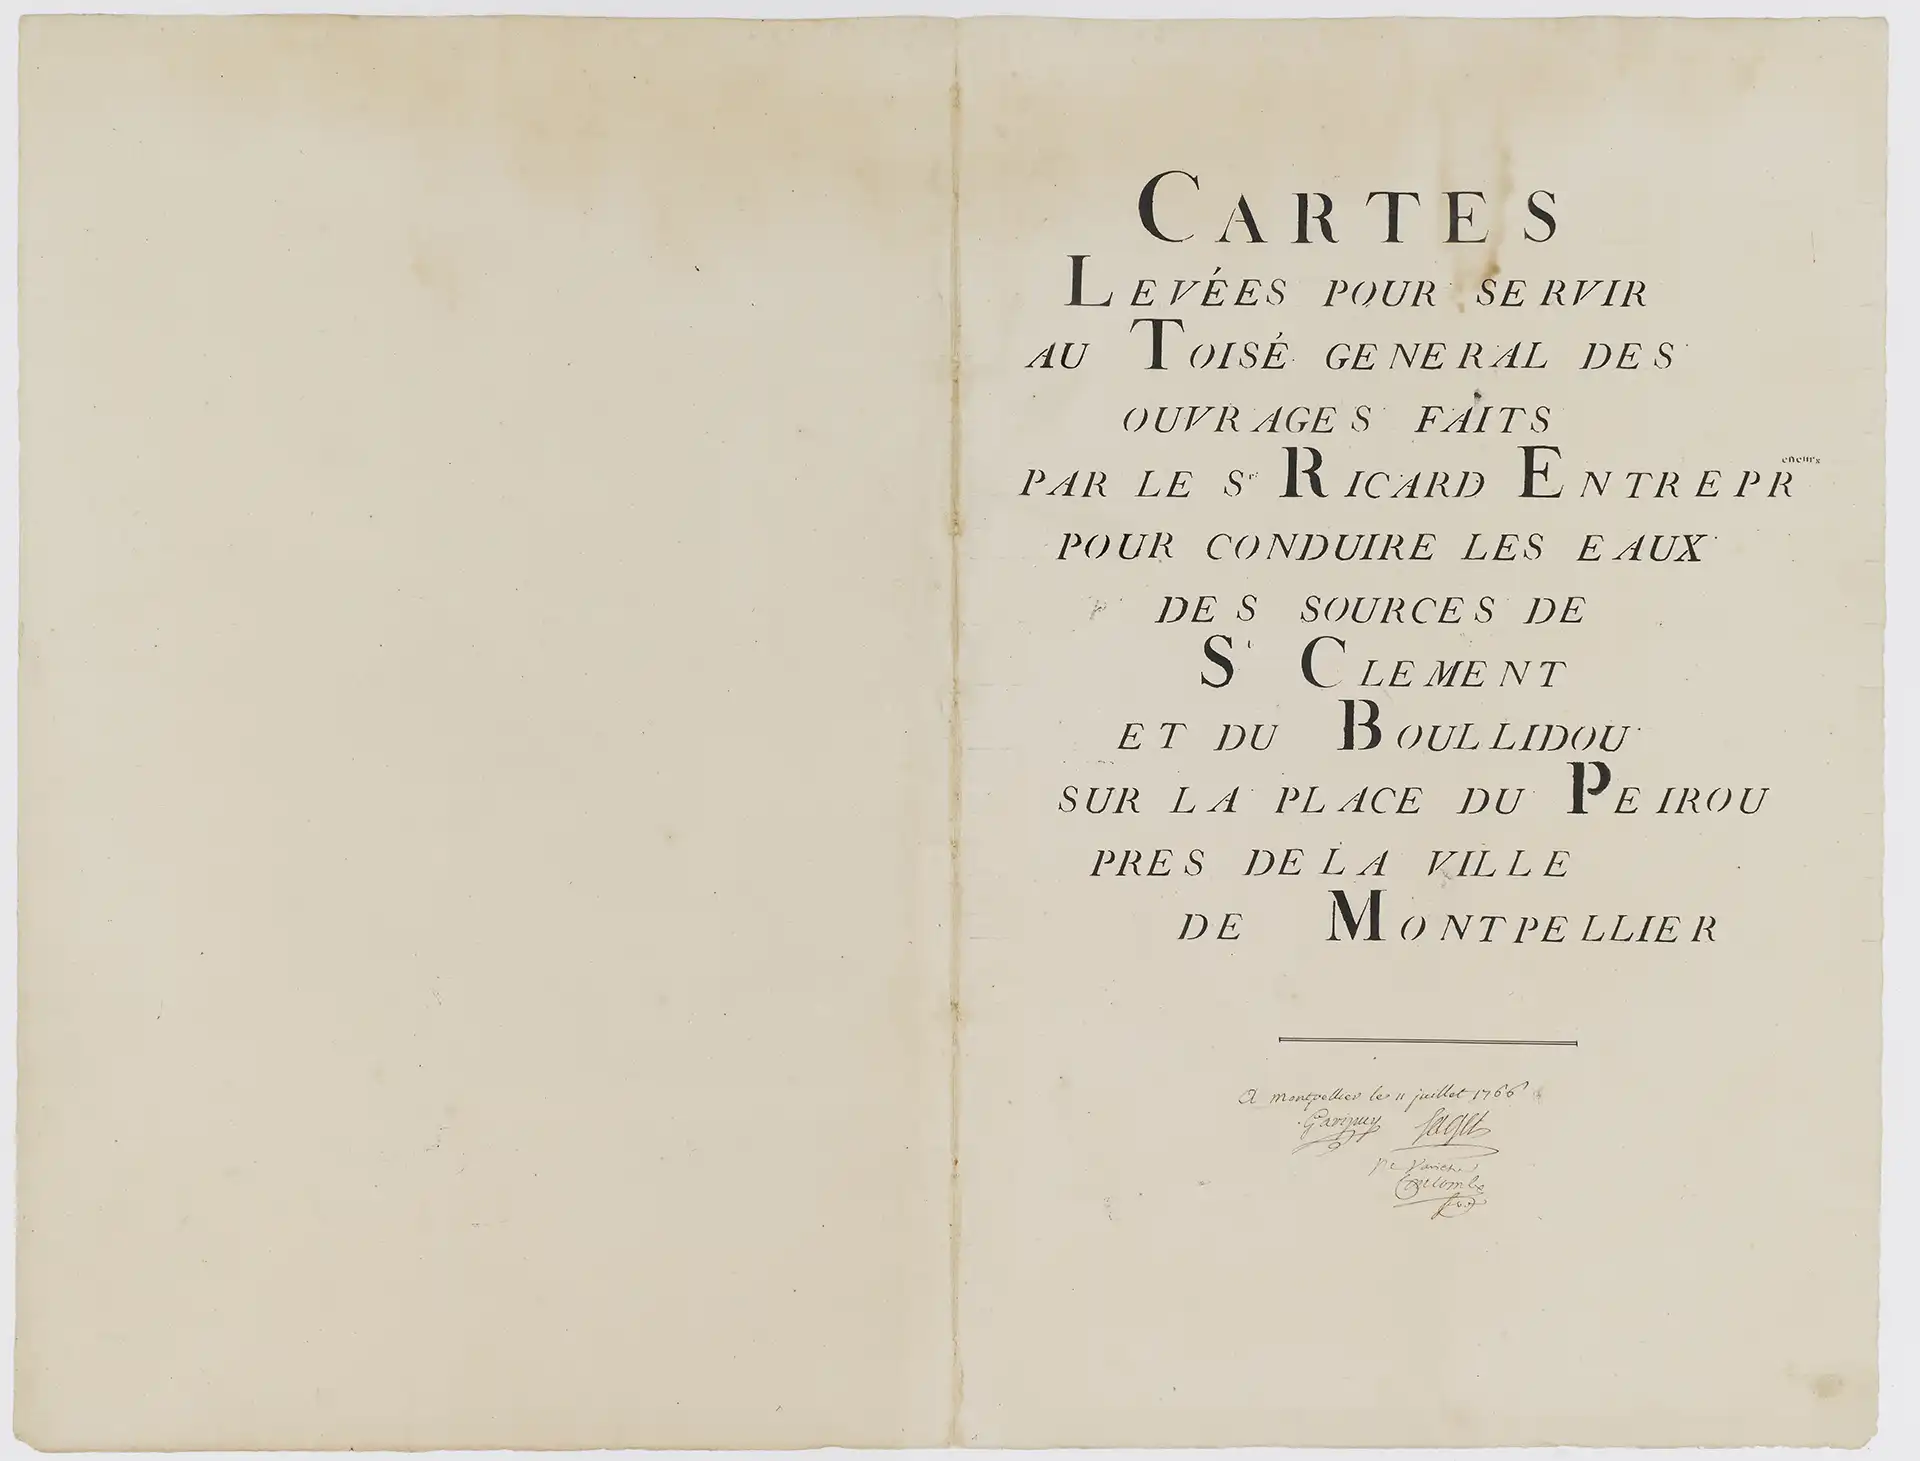 CARTES
LEVÉES POUR SERVIR
AU TOISÉ GENERAL DES
OUVRAGES FAITS
PAR LE Sr RICARD ENTREPReneurs
POUR CONDUIRE LES EAUX
DES SOURCES DE
St CLEMENT
ET DU BOULLIDOU
SUR LA PLACE DU PEIROU
PRES DE LA VILLE
DE MONTPELLIER
A montpellier le 11 juillet 1766
Garipuy Saget
Coulomb